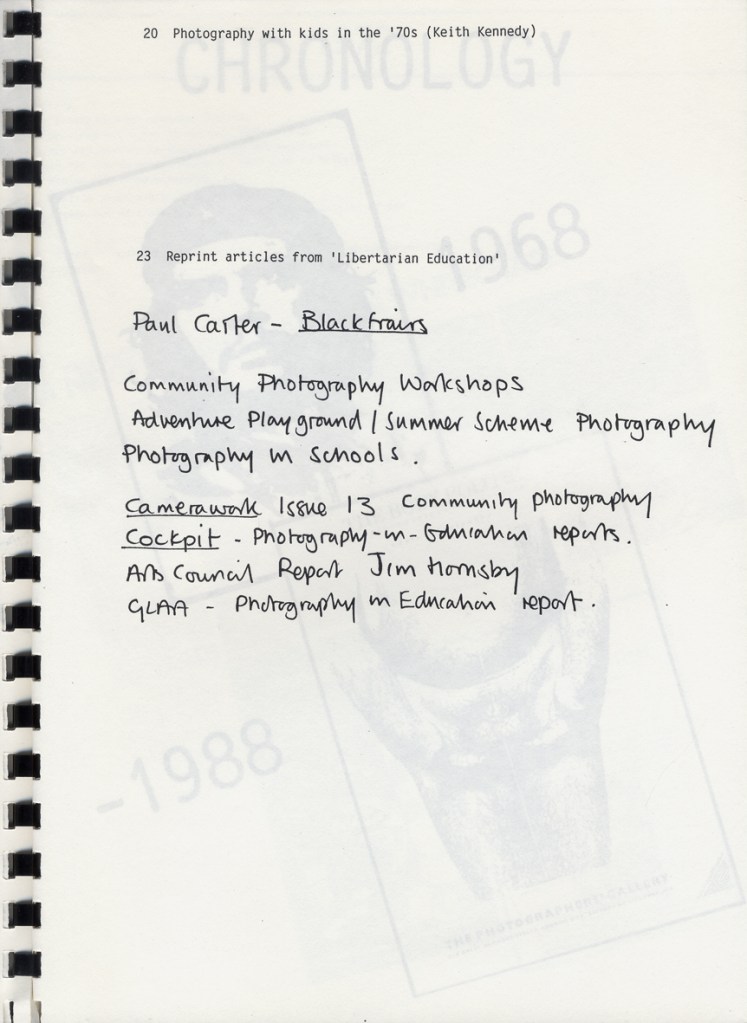 20 Photography with kids in the '70s (Keith Kennedy)
CHRONOLOGY
1968
23 Reprint articles from 'Libertarian Education'
Paul Carter - Blackfriars
Community Photography Workshops
Adventure Playground / Summer Scheme Photography
Photography in Schools.
Camerawork Issue 13 Community photography
Cockpit - Photography-in-Education reports.
Arts Council Report Jim Hornsby
GLAA - Photography in Education report.
-1988
THE PHOTOGRAPHERS' GALLERY